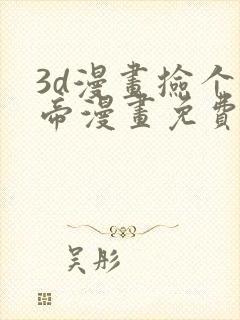 3d漫畫撿个
帝漫畫免費
吴彤